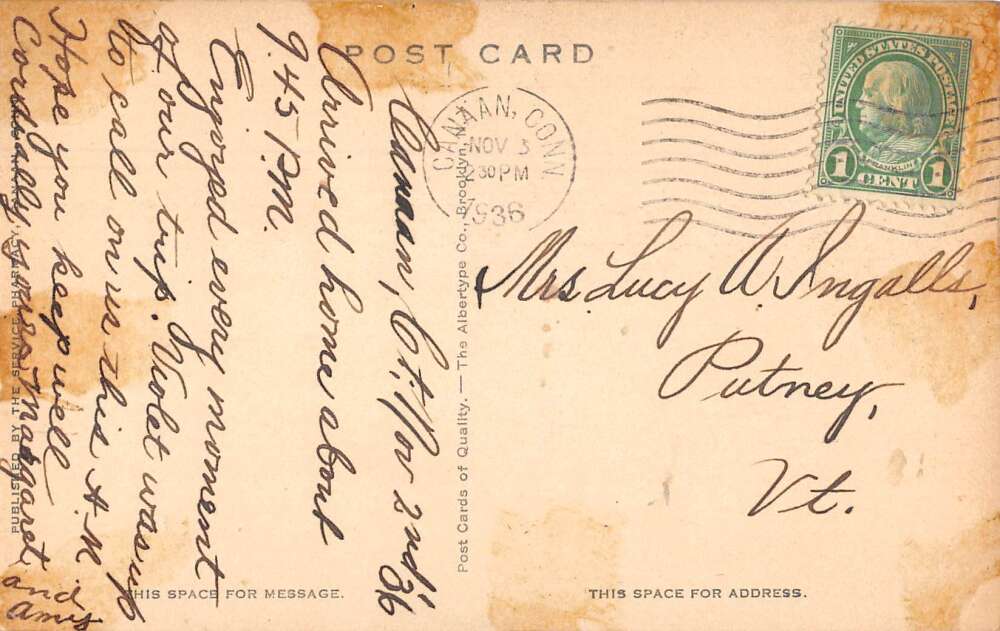 POST CARD
Canaan, Ct. Nov 2nd '36
Arrived home about
9.45 P.M.
Enjoyed every moment
of our trip. Violet was up
to call on us this A.M.
Hope you keep well
Cordially yours Margaret
and
Amy
CANAAN, CONN.
NOV 3
30 PM
1936
UNITED STATES POSTAGE
FRANKLIN
1 CENT 1
Mrs. Lucy A. Ingalls,
Putney,
Vt.
PUBLISHED BY THE SERVICE PHARMACY, CANAAN, CONN.
Post Cards of Quality. — The Albertype Co., Brooklyn, N.Y.
THIS SPACE FOR MESSAGE.
THIS SPACE FOR ADDRESS.